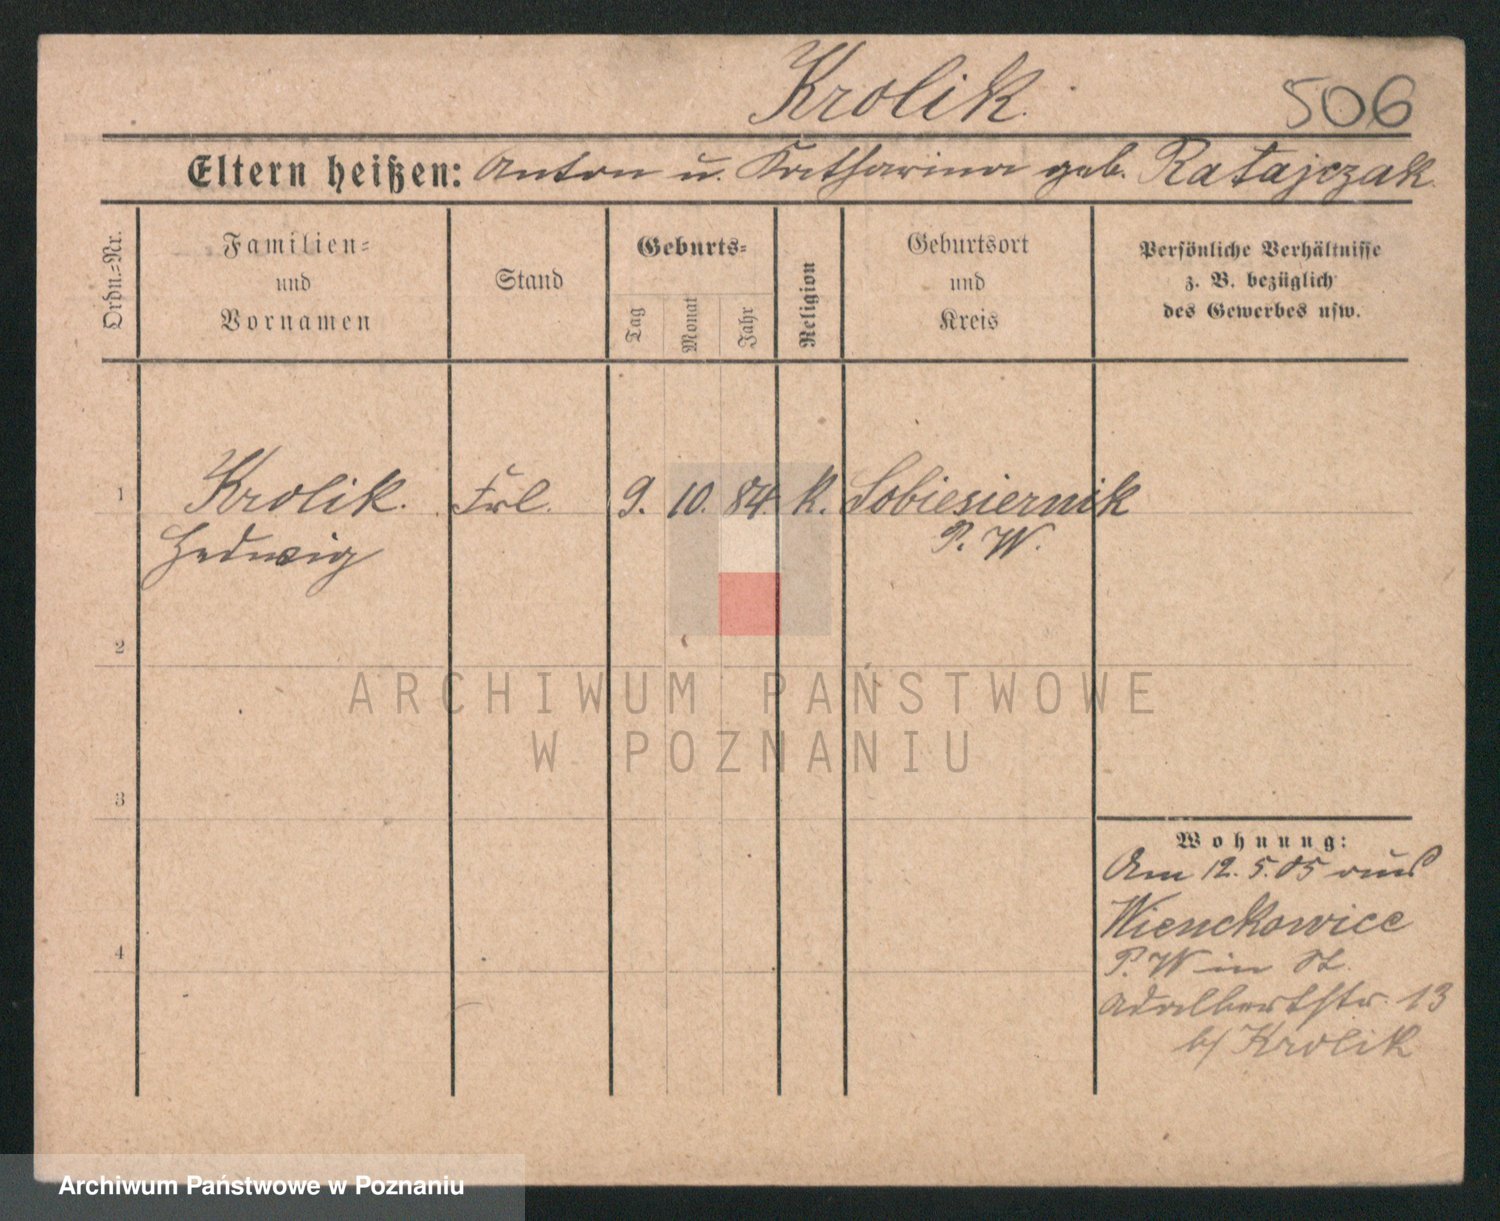 Krolik.
506
Eltern heißen: Anton u. Katharina geb. Ratajczak
Ordn.=Nr.
Familien=
und
Vornamen
Stand
Geburts=
Tag
Monat
Jahr
Religion
Geburtsort
und
Kreis
Persönliche Verhältnisse
z. B. bezüglich
des Gewerbes usw.
1 Krolik. Frl. 9. 10. 84. K. Sobiesiernik
Hedwig P. W.
2
3
4
Wohnung:
Am 12.5.05 aus
Wienckowice
P. W in St.
Adalbertstr. 13
b/ Krolik
ARCHIWUM PAŃSTWOWE
W POZNANIU
Archiwum Państwowe w Poznaniu